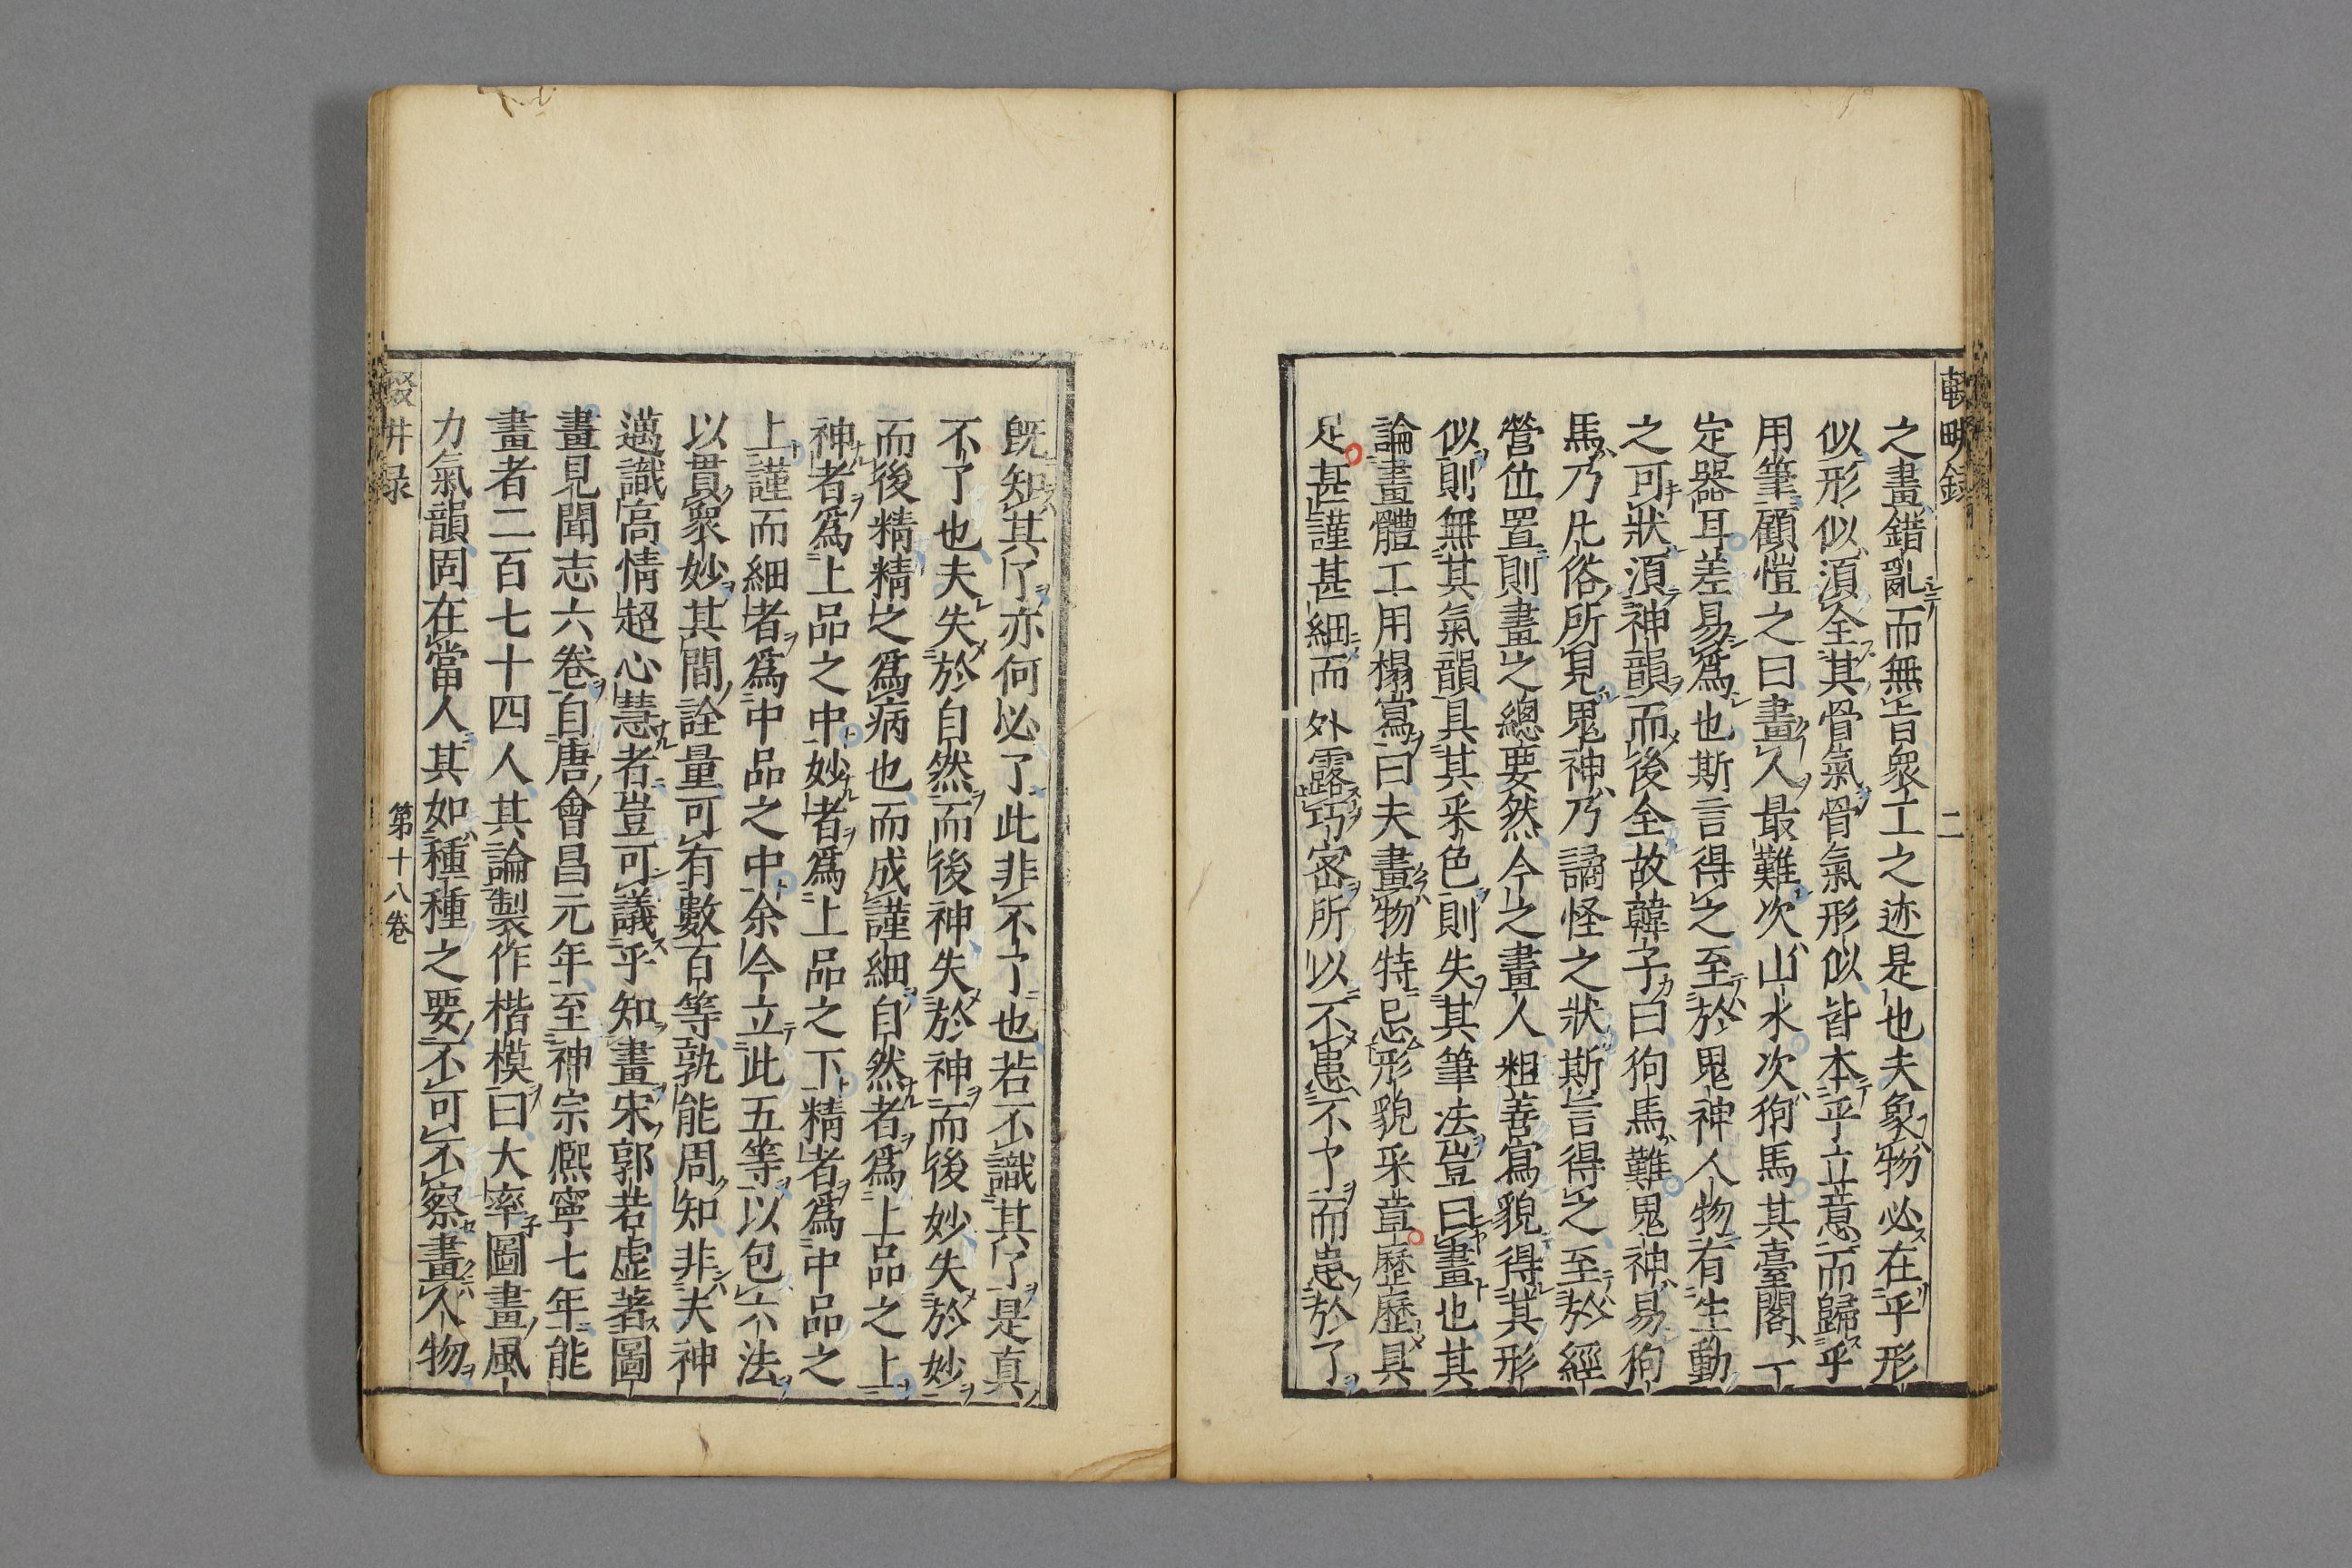 輟畊錄
二
之畫錯亂而無旨衆工之迹是也夫象物必在乎形
似形似湏全其骨氣骨氣形似皆本乎立意而歸乎
用筆顧愷之曰畫人最難次山水次狗馬其臺閣一
定器耳差易爲也斯言得之至於鬼神人物有生動
之可狀湏神韻而後全故韓子曰狗馬難鬼神易狗
馬乃凡俗所見鬼神乃譎怪之狀斯言得之至於經
營位置則畫之總要然今之畫人粗善寫貌得其形
似則無其氣韻具其采色則失其筆法豈曰畫也其
論畫體工用搨寫曰夫畫物特忌形貌采章歷歷具
足甚謹甚細而外露巧密所以不患不了而患於了
旣知其了亦何必了此非不了也若不識其了是真
不了也夫失於自然而後神失於神而後妙失於妙
而後精精之爲病也而成謹細自然者爲上品之上
神者爲上品之中妙者爲上品之下精者爲中品之
上謹而細者爲中品之中余今立此五等以包六法
以貫衆妙其間詮量可有數百等孰能周知非夫神
邁識高情超心慧者豈可議乎知畫宋郭若虛著圖
畫見聞志六卷自唐會昌元年至神宗熈寧七年能
畫者二百七十四人其論製作楷模曰大率圖畫風
力氣韻固在當人其如種種之要不可不察畫人物
第十八卷